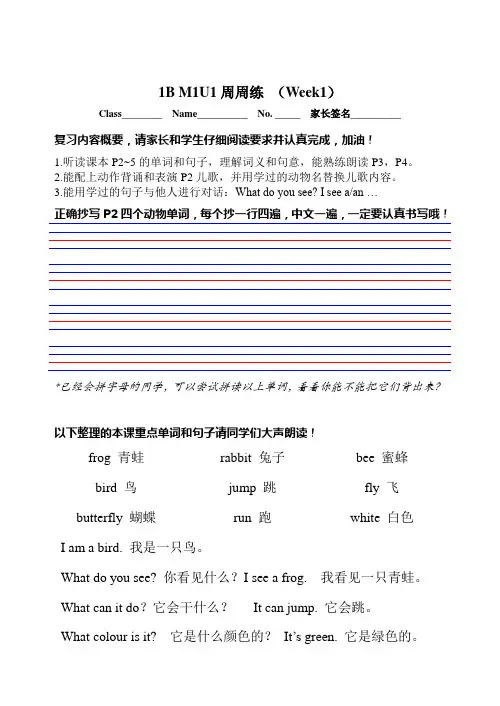 1B M1U1 周周练 （Week1）
Class________ Name__________ No. _____ 家长签名__________
复习内容概要，请家长和学生仔细阅读要求并认真完成，加油！
1.听读课本 P2~5 的单词和句子，理解词义和句意，能熟练朗读 P3，P4。
2.能配上动作背诵和表演 P2 儿歌，并用学过的动物名替换儿歌内容。
3.能用学过的句子与他人进行对话：What do you see? I see a/an …
正确抄写 P2 四个动物单词，每个抄一行四遍，中文一遍，一定要认真书写哦！
*已经会拼字母的同学，可以尝试拼读以上单词，看看你能不能把它们背出来？
以下整理的本课重点单词和句子请同学们大声朗读！
frog 青蛙 rabbit 兔子 bee 蜜蜂
bird 鸟 jump 跳 fly 飞
butterfly 蝴蝶 run 跑 white 白色
I am a bird. 我是一只鸟。
What do you see? 你看见什么？I see a frog. 我看见一只青蛙。
What can it do？它会干什么？ It can jump. 它会跳。
What colour is it? 它是什么颜色的？ It’s green. 它是绿色的。